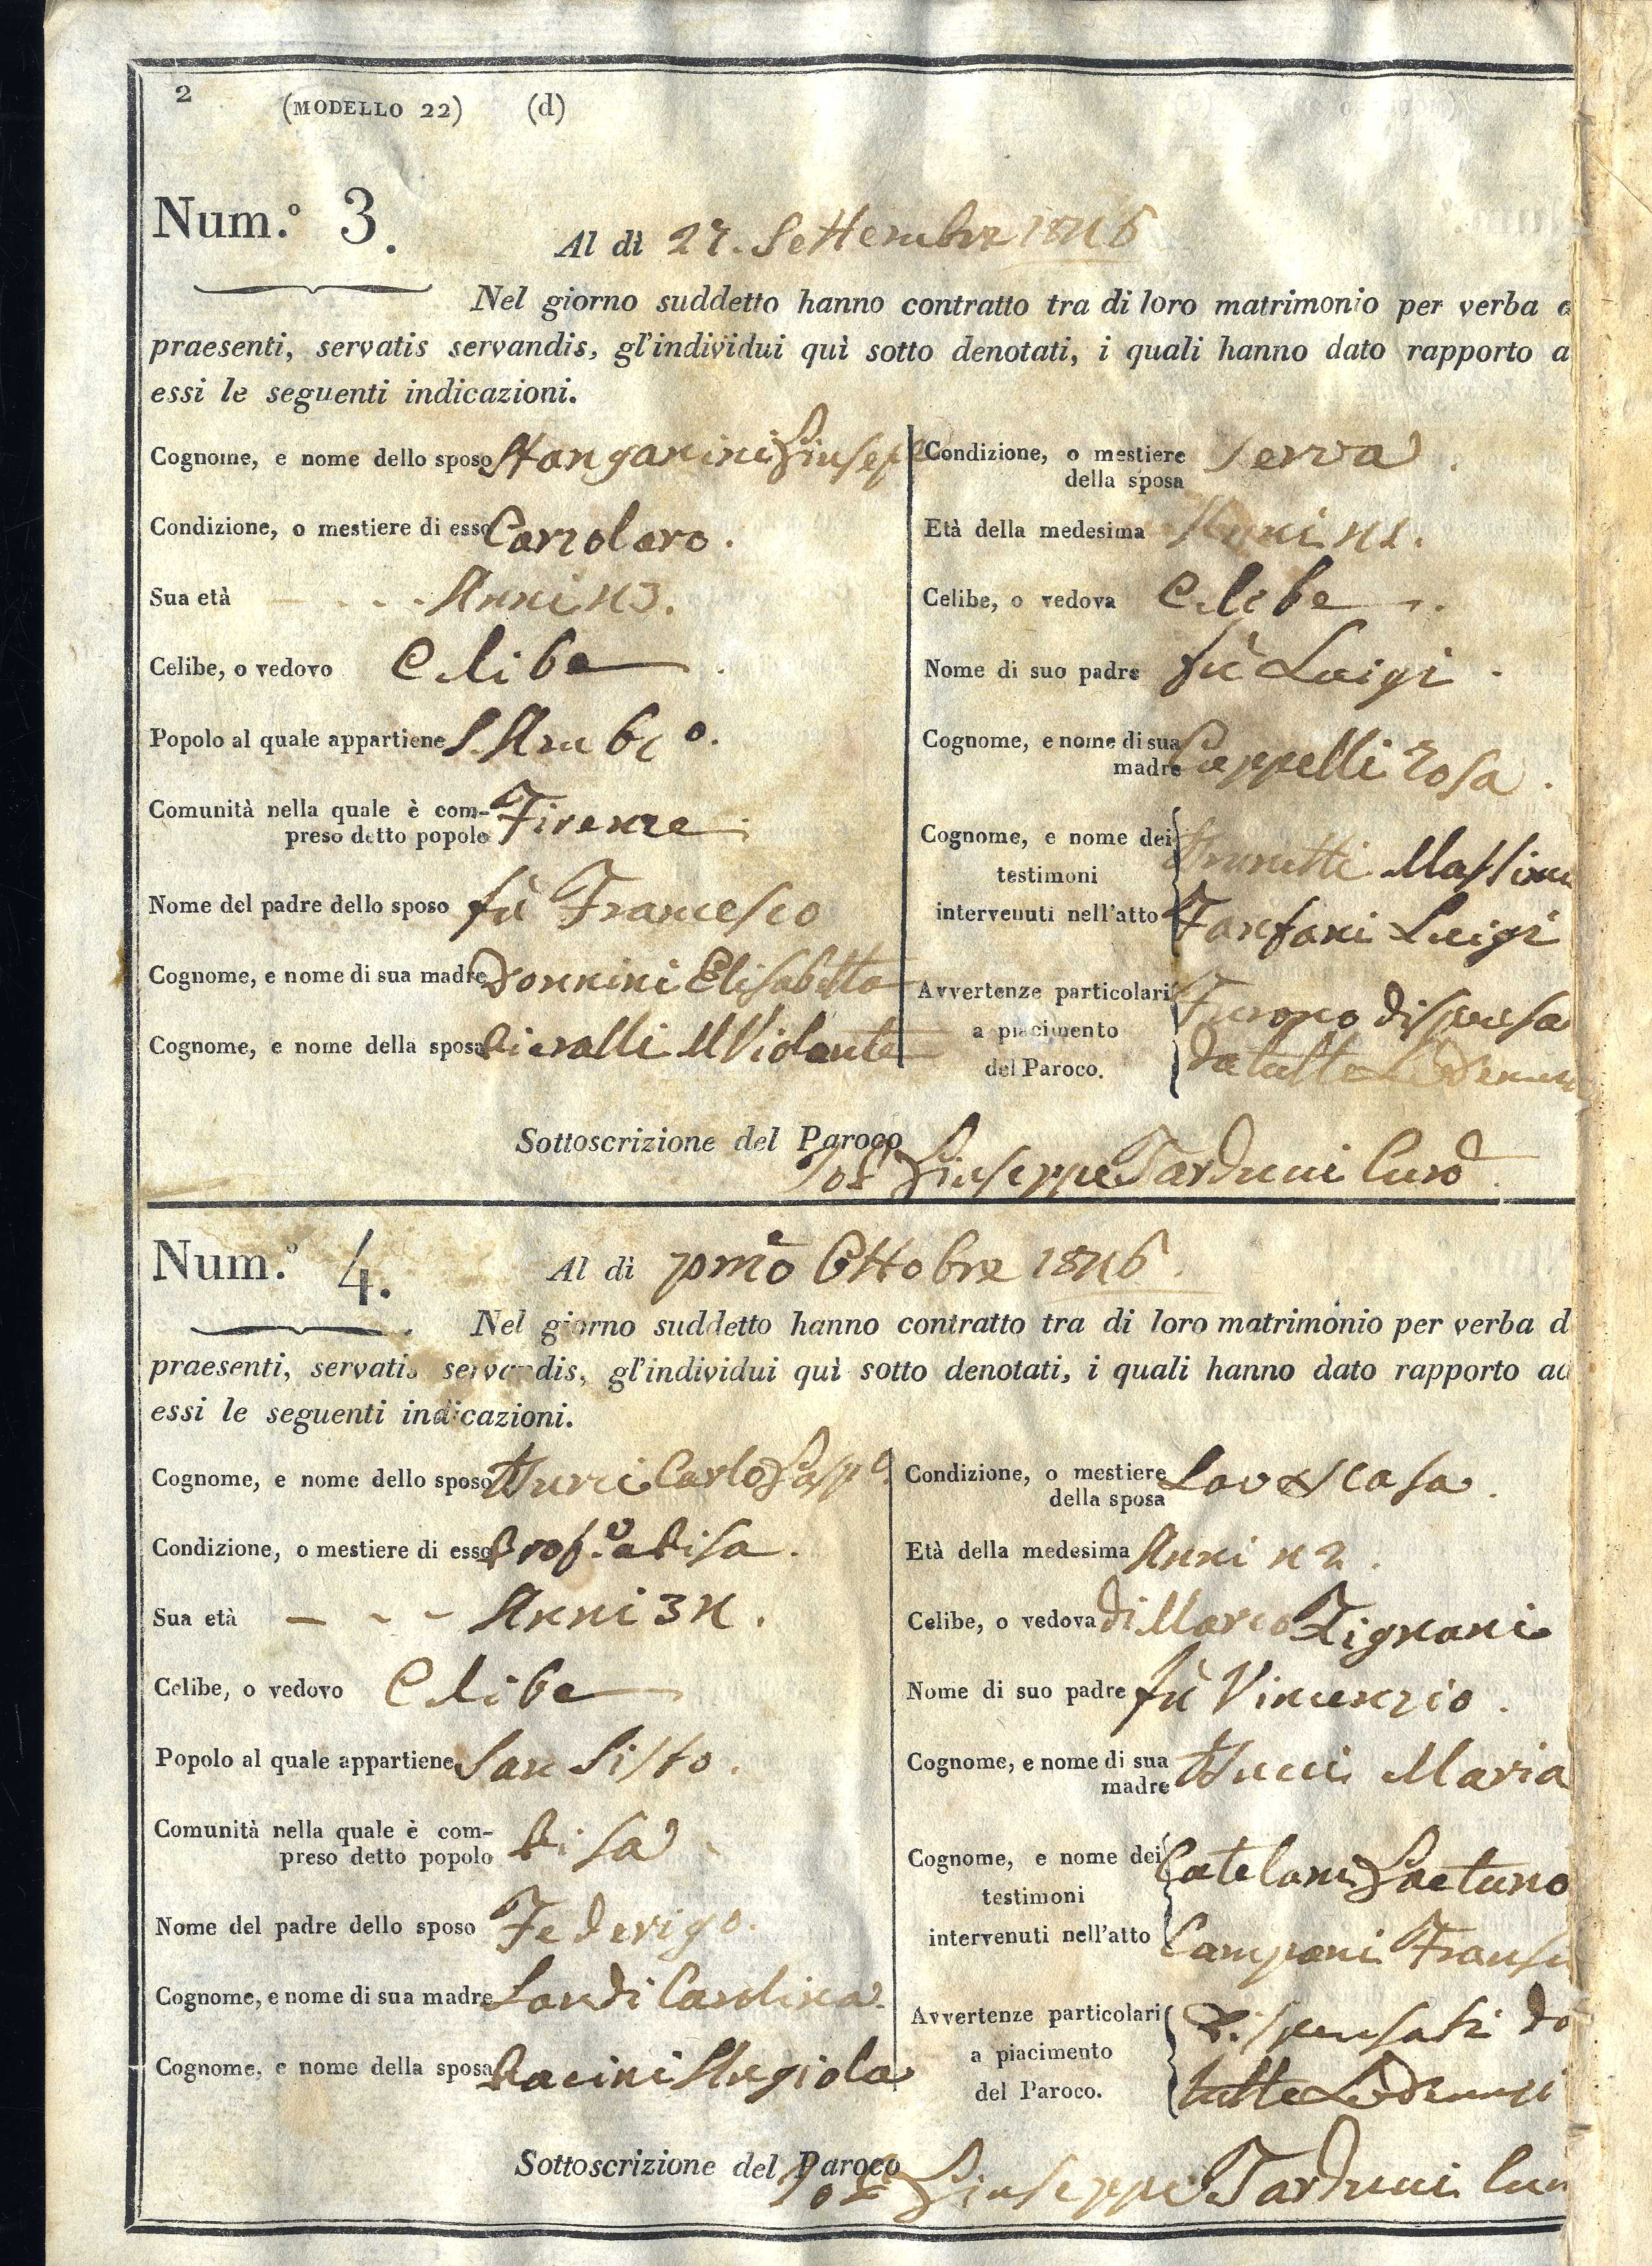 2 (MODELLO 22) (d)
Num.º 3.
Al dì 27. Settembre 1846
Nel giorno suddetto hanno contratto tra di loro matrimonio per verba
praesenti, servatis servandis, gl'individui quì sotto denotati, i quali hanno dato rapporto a
essi le seguenti indicazioni.
Cognome, e nome dello sposo Stanganini Giusep
Condizione, o mestiere di esso Carrolaro.
Sua età Anni 43.
Celibe, o vedovo Celibe
Popolo al quale appartiene S. Amb.º
Comunità nella quale è com-
preso detto popolo Firenze
Nome del padre dello sposo fù Francesco
Cognome, e nome di sua madre Donnini Elisabetta
Cognome, e nome della sposa Pieralli M Violante
Condizione, o mestiere
della sposa Serva
Età della medesima Anni 41.
Celibe, o vedova Celibe
Nome di suo padre fù Luigi
Cognome, e nome di sua
madre Cappelli Rosa
Cognome, e nome dei
testimoni
intervenuti nell'atto
Massim
Fanfani Luigi
Avvertenze particolari
a piacimento
del Paroco.
Furono dispensa
da tutte Le Denun
Sottoscrizione del Paroco
Giuseppe Tarduci Curo
Num.º 4.
Al dì pmo Ottobre 1846.
Nel giorno suddetto hanno contratto tra di loro matrimonio per verba d
praesenti, servatis servandis, gl'individui quì sotto denotati, i quali hanno dato rapporto ad
essi le seguenti indicazioni.
Cognome, e nome dello sposo Burci Carlo Gasp.
Condizione, o mestiere di esso Prof.e a Pisa.
Sua età Anni 34.
Celibe, o vedovo Celibe
Popolo al quale appartiene San Sisto.
Comunità nella quale è com-
preso detto popolo Pisa
Nome del padre dello sposo Federigo.
Cognome, e nome di sua madre Landi Carolina.
Cognome, e nome della sposa Pacini Angiola
Condizione, o mestiere
della sposa Casa.
Età della medesima Anni 42.
Celibe, o vedova di Marco Zignani
Nome di suo padre fù Vincenzio.
Cognome, e nome di sua
madre Bucci Maria
Cognome, e nome dei
testimoni
intervenuti nell'atto
Catelani Gaetano
Campani Fransc
Avvertenze particolari
a piacimento
del Paroco.
Dispensati da
tutte Le Denunzi
Sottoscrizione del Paroco
Giuseppe Tarduci Cur